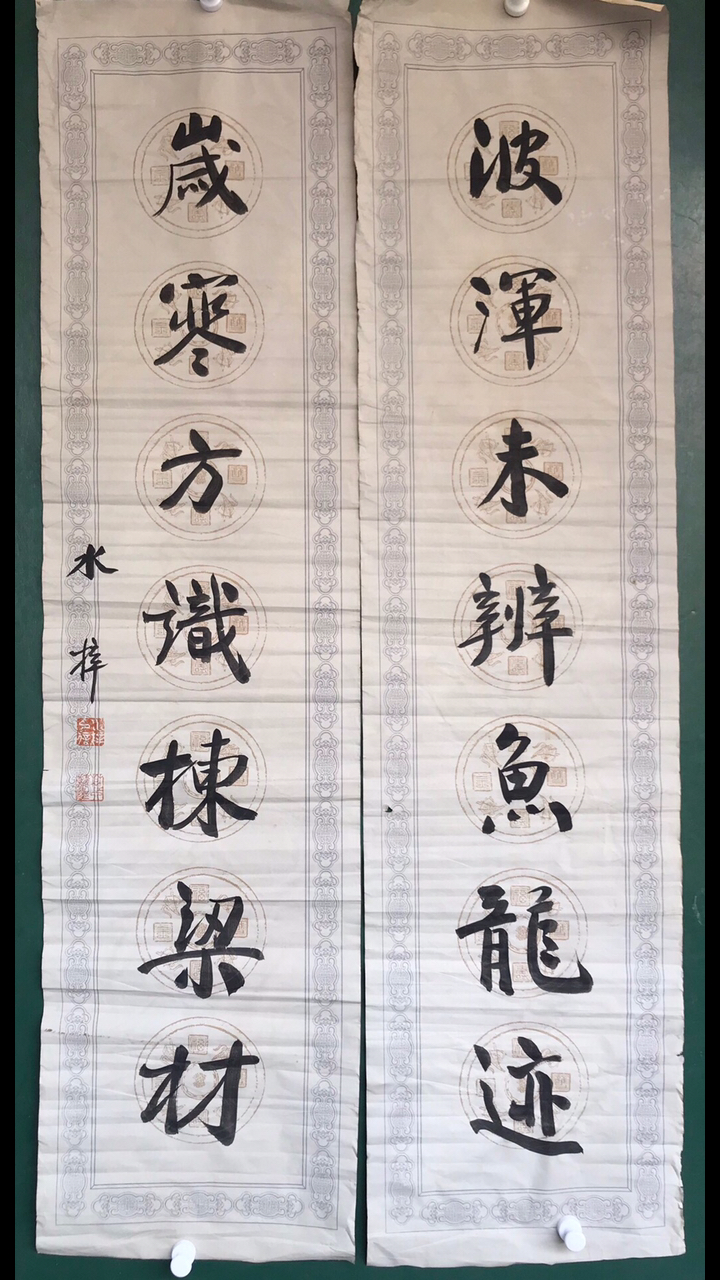 波渾未辨魚龍迹
歲寒方識棟梁材
水梓